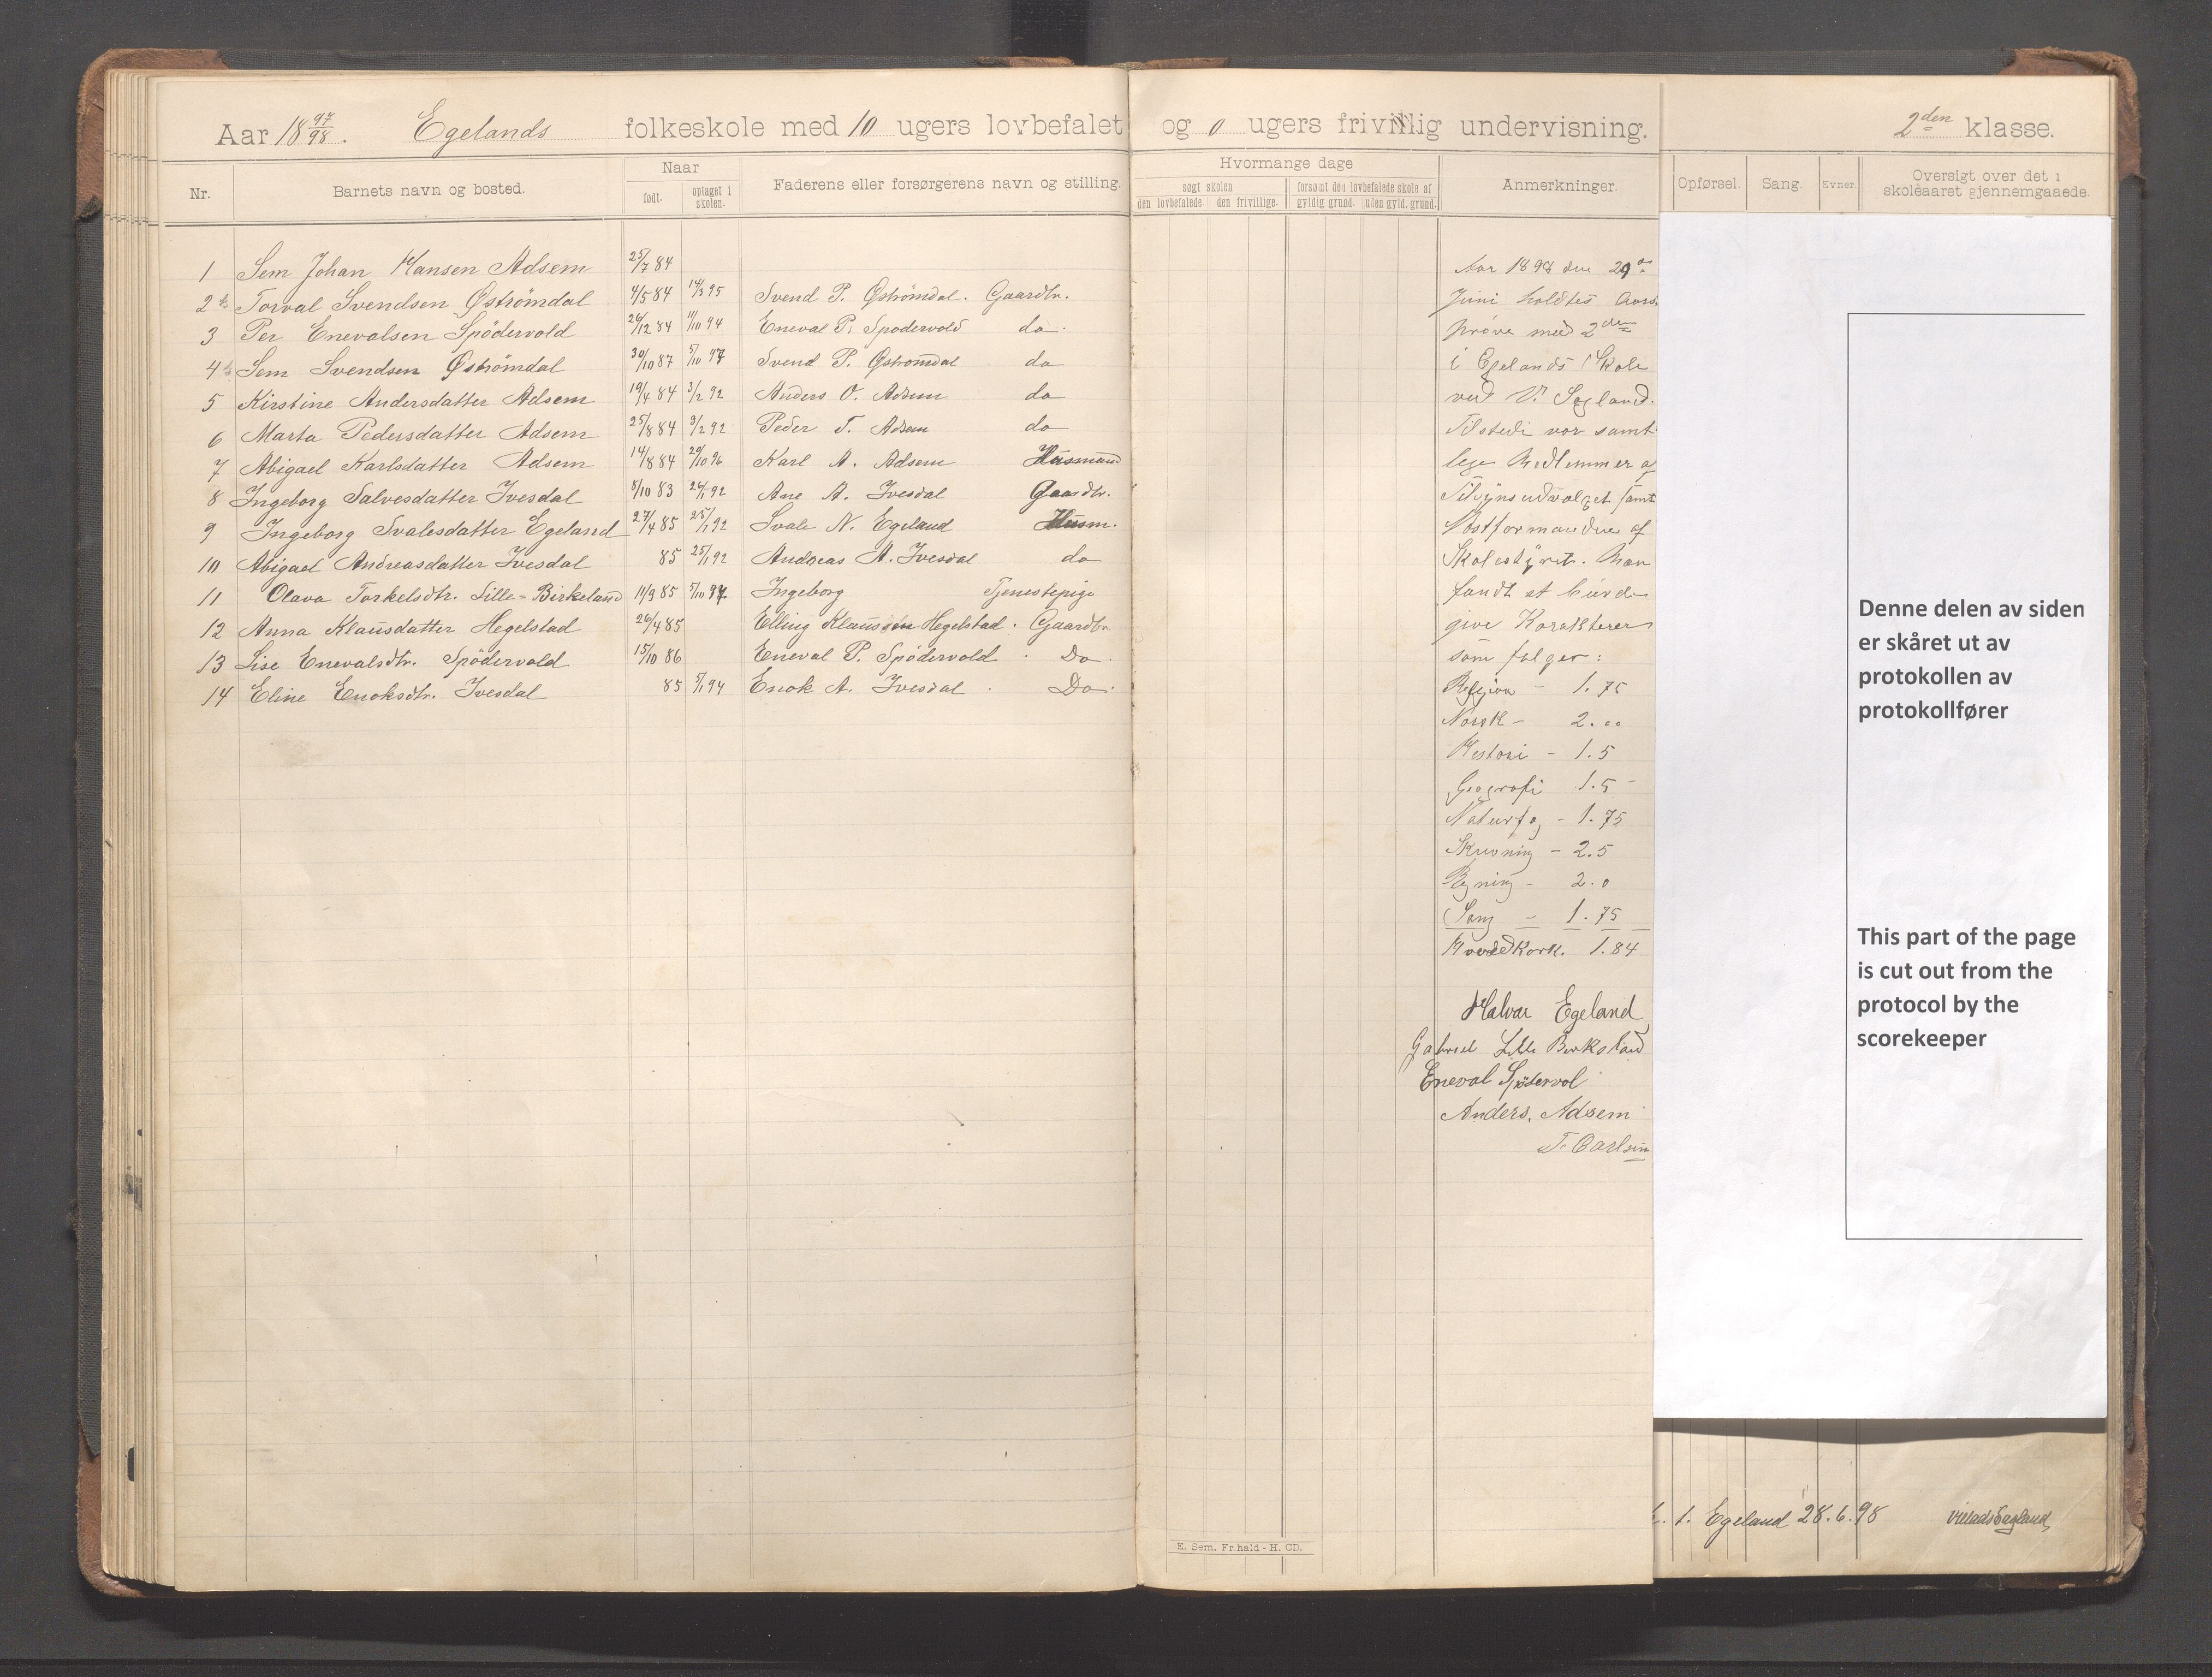 Aar 18 97/98. Egelands folkeskole med 10 ugers lovbefalet og 0 ugers frivillig undervisning. 2den klasse.
Nr. Barnets navn og bosted. Naar født. optaget i skolen. Faderens eller forsørgerens navn og stilling.
Hvormange dage
søgt skolen forsømt den lovbefalede skole af
den lovbefalede. den frivillige. gyldig grund. uden gyld. grund.
Anmerkninger.
Opførsel. Sang. Evner. Oversigt over det i skoleaaret gjennemgaaede.
1 Sem Johan Hansen Adsem 25/7 84
2 Torval Svendsen Øströmdal 4/5 84 14/3 95 Svend P. Øströmdal. Gaardbr.
3 Per Enevalsen Spödervold 26/12 84 11/10 94 Eneval P. Spodervold do.
4 Sem Svendsen Øströmdal 30/10 87 5/10 97 Svend P. Øströmdal do
5 Kirstine Andersdatter Adsem 19/4 84 3/2 92 Anders O. Adsem do
6 Marta Pedersdatter Adsem 25/8 84 3/2 92 Peder T. Adsem do
7 Abigael Karlsdatter Adsem 14/8 84 29/10 96 Karl A. Adsem Husmand
8 Ingeborg Salvesdatter Ivesdal 8/10 83 26/1 92 Ane A. Ivesdal Gaardbr.
9 Ingeborg Svalesdatter Egeland 27/4 85 25/1 92 Svale N. Egeland Husm.
10 Abigael Andreasdatter Ivesdal 85 25/1 92 Andreas A. Ivesdal do
11 Olava Torkelsdtr. Lille-Birkeland 11/9 85 5/10 97 Ingeborg Tjenestepige
12 Anna Klausdatter Hegelstad 26/4 85 Elling Klaussen Hegelstad. Gaardbr.
13 Lise Enevalsdtr. Spödervold 15/10 86 Eneval P. Spödervold. Do.
14 Eline Enoksdtr. Ivesdal 85 5/1 94 Enok A. Ivesdal. Do.
Aar 1898 den 29de
Juni holdtes Aars
prøve med 2den
i Egelands Skole
ved V. Segland.
Tilstede var samt
lege Medlemmer af
Tilsynsudvalget samt
Skolestyret. Man
fandt at burde
give Karakterer
som følger:
Religion - 1.75
Norsk - 2.00
Hestori - 1.5
Geografi 1.5
Naturfag - 1.75
Skrivning - 2.5
Regning - 2.0
Sang - 1.75
Hovedkark. 1.84
Halvar Egeland
Gabriel Lille Birkeland
Eneval Spödervol
Anders. Adsem
T. Carlsen
Denne delen av siden
er skåret ut av
protokollen av
protokollfører
This part of the page
is cut out from the
protocol by the
scorekeeper
1. Egeland 28.6.98
E. Sem. Fr.hald - H. CD.